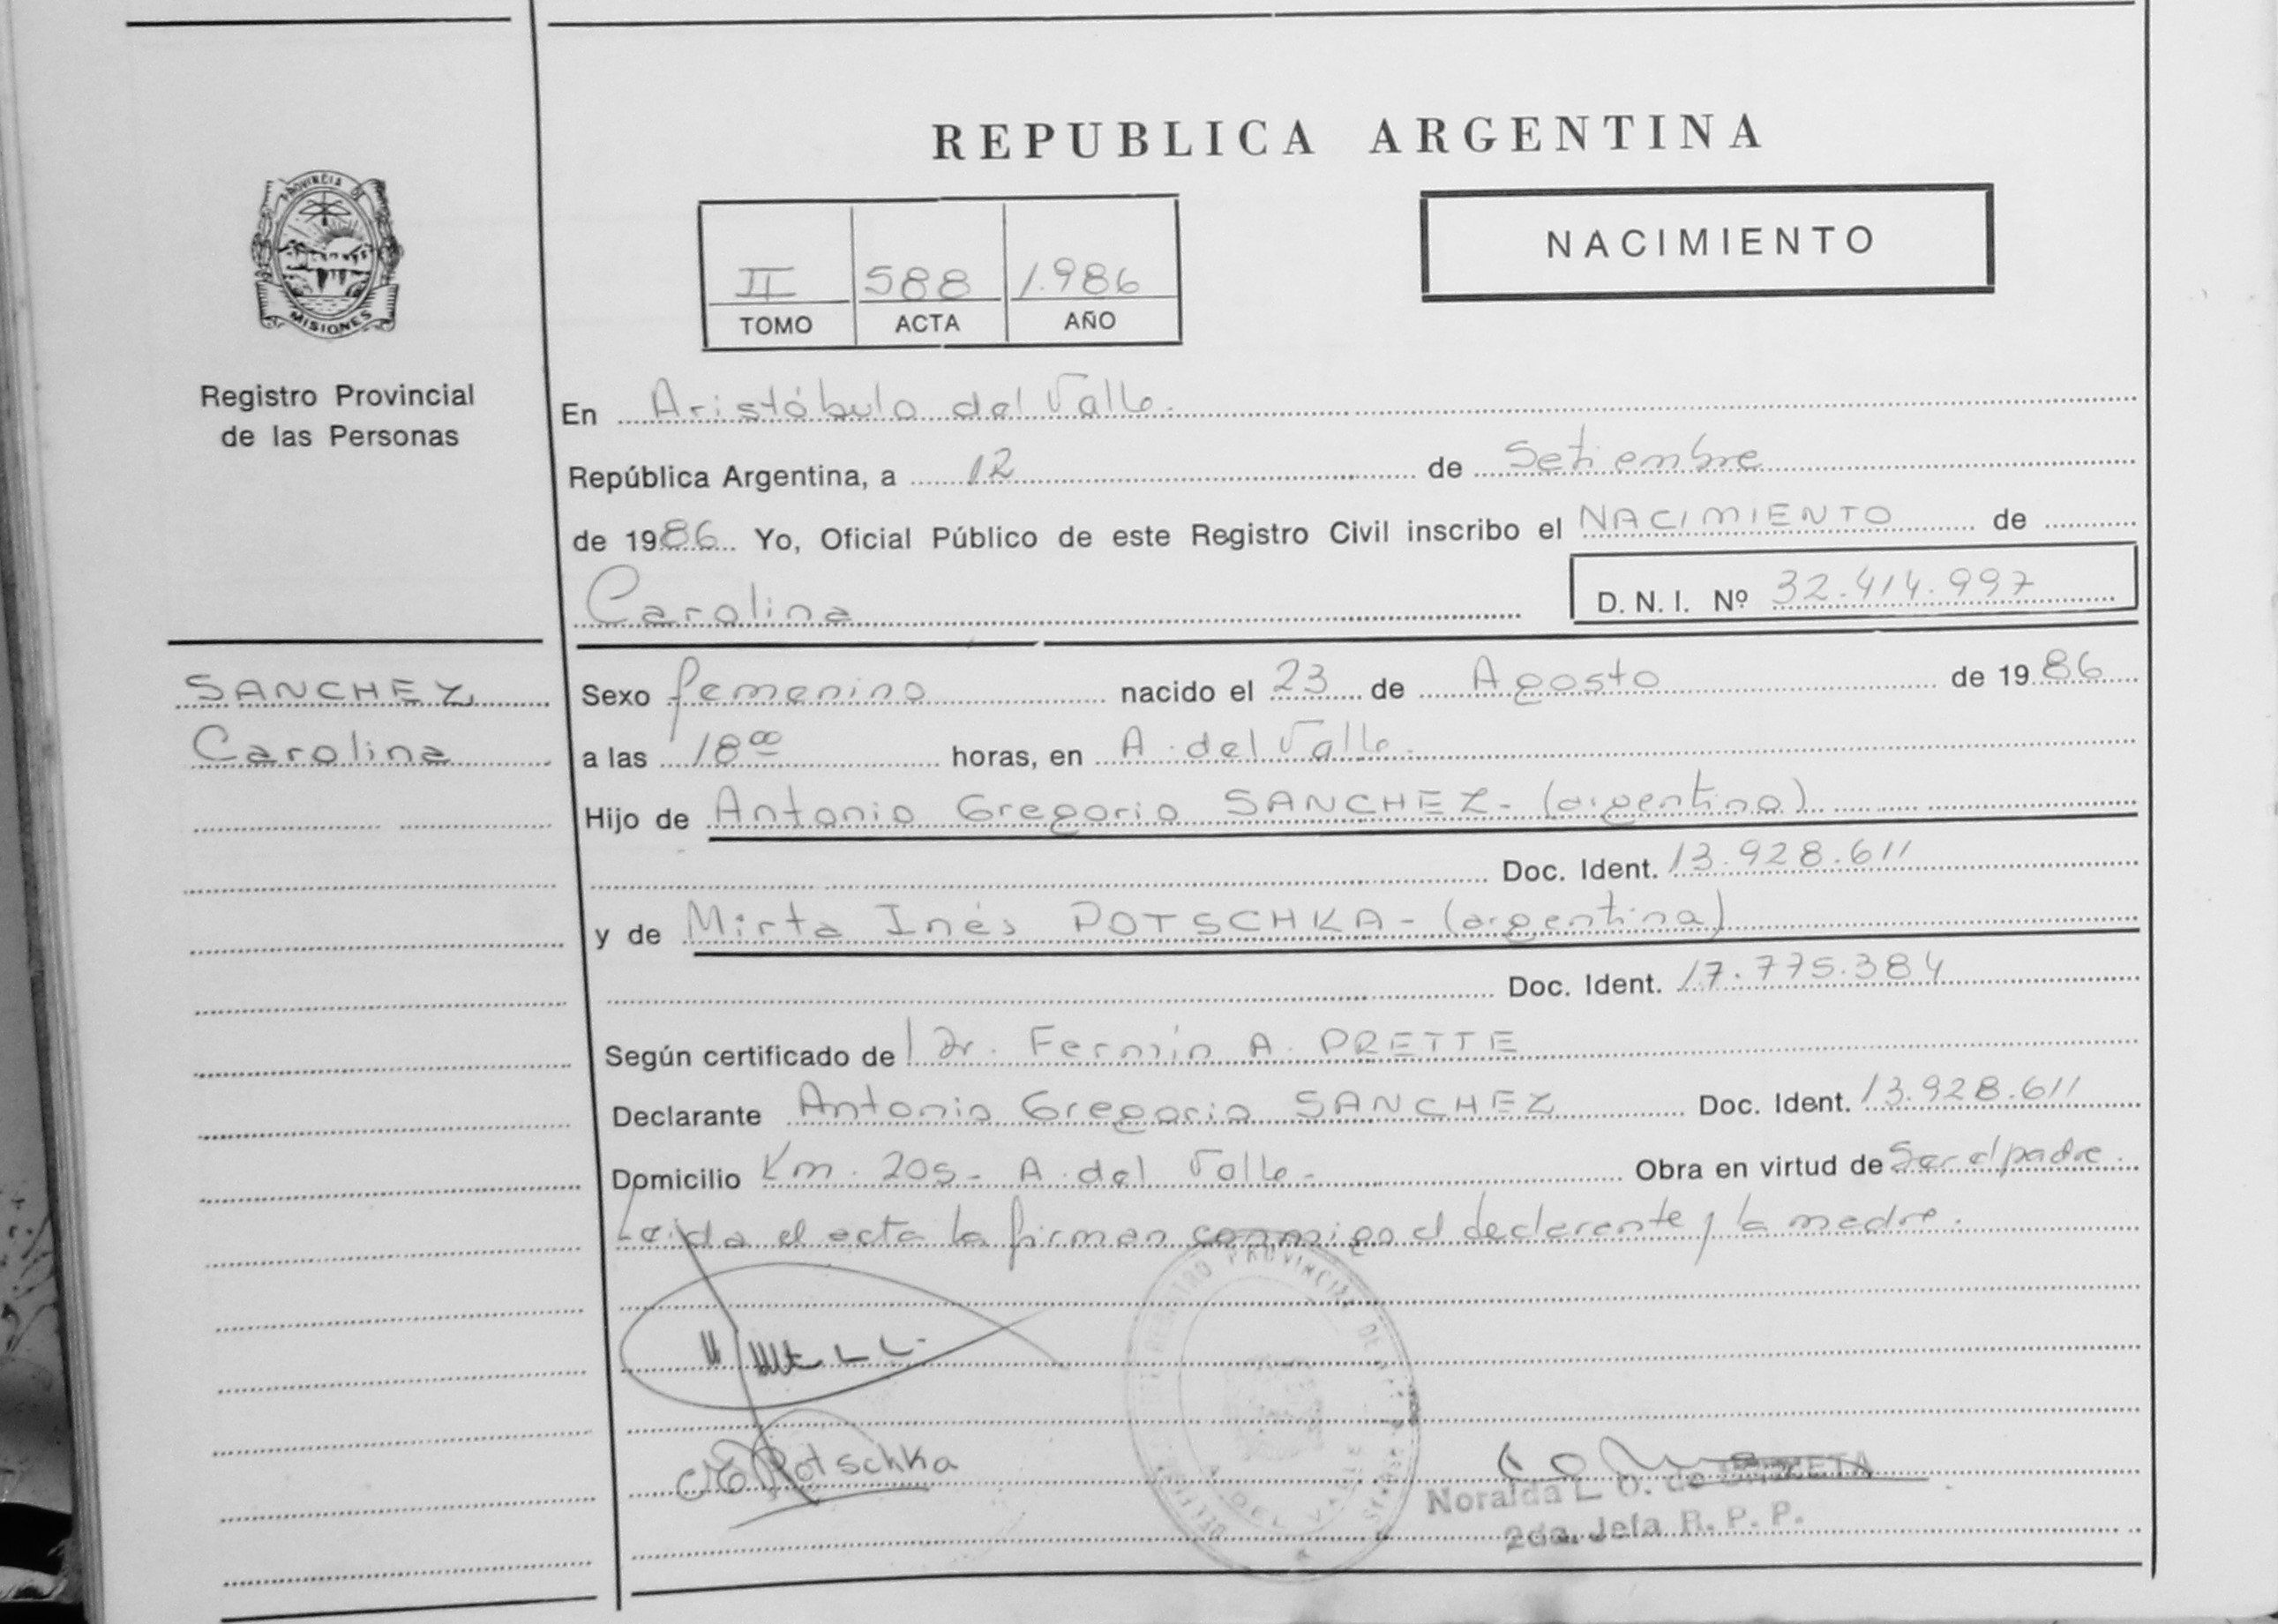 REPUBLICA ARGENTINA
PROVINCIA DE
MISIONES
Registro Provincial
de las Personas
SANCHEZ
Carolina
II 588 1.986
TOMO ACTA AÑO
NACIMIENTO
En Aristóbulo del Valle.
República Argentina, a 12 de Setiembre
de 1986 Yo, Oficial Público de este Registro Civil inscribo el NACIMIENTO de
Carolina D. N. I. Nº 32.414.997
Sexo femenino nacido el 23 de Agosto de 1986
a las 18 00 horas, en A. del Valle.
Hijo de Antonio Gregorio SANCHEZ - (argentino)
Doc. Ident. 13.928.611
y de Mirta Inés POTSCHKA - (argentina)
Doc. Ident. 17.775.384
Según certificado de Dr. Fermín A. PRETTE
Declarante Antonio Gregorio SANCHEZ Doc. Ident. 13.928.611
Domicilio Km. 205 - A. del Valle - Obra en virtud de Ser el padre.
Leida el acta la firman conmigo el declarante y la madre.
Potschka
REGISTRO PROVINCIAL DE
A. DEL VALLE
Noralda L. O. de
2da. Jefa R. P. P.